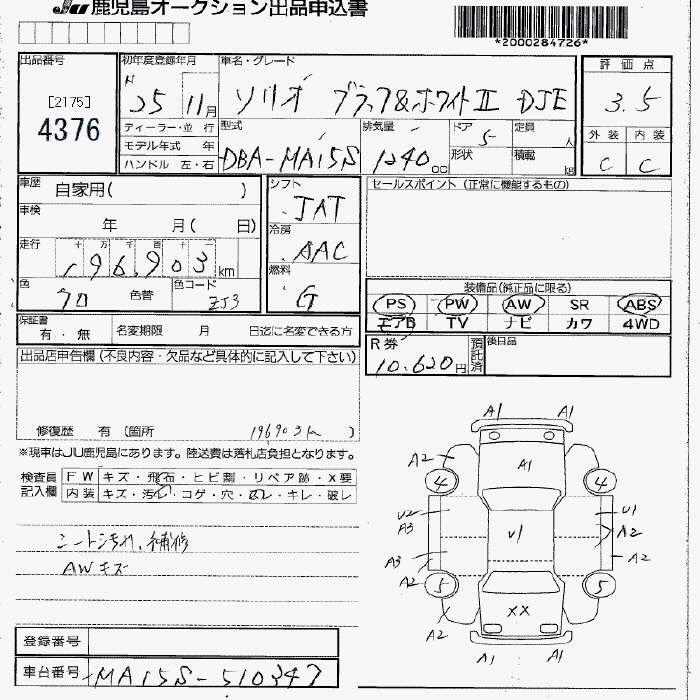 JU 鹿児島オークション出品申込書
*2000284726*
出品番号
[2175]
4376
初年度登録年月
H 25 11月
車名・グレード
ソリオ ブラック&ホワイトⅡ DJE
評価点
3.5
外装 内装
C C
ディーラー・並行
モデル年式 年
ハンドル 左・右
型式
DBA-MA15S
排気量
1240 cc
ドア
5
形状
定員
人
積載
kg
車歴 自家用( )
車検
年 月( 日)
走行 十 万 千 百 十 一
196,903 km
色 色替 色コード
ZJ3
シフト
IAT
冷房
AAC
燃料
G
セールスポイント (正常に機能するもの)
装備品(純正品に限る)
PS PW AW SR ABS
エアB TV ナビ カワ 4WD
保証書
有・無
名変期限 月 日迄に名変できる方
R券
10,620円
預託済
後日品
出品店申告欄(不良内容・欠品など具体的に記入して下さい)
修復歴 有 (箇所 196903km )
※現車はJU鹿児島にあります。陸送費は落札店負担となります。
検査員
記入欄
FW キズ・飛石・ヒビ割・リペア跡・X要
内装 キズ・汚レ・コゲ・穴・スレ・キレ・破レ
シート汚れ、補修
AWキズ
登録番号
車台番号 MA15S-510347
A1 A1
A2
4 4
A1
U2 U1
A3 U1 A2
A3 A2
A2 5 5
XX
A2
A1 A1